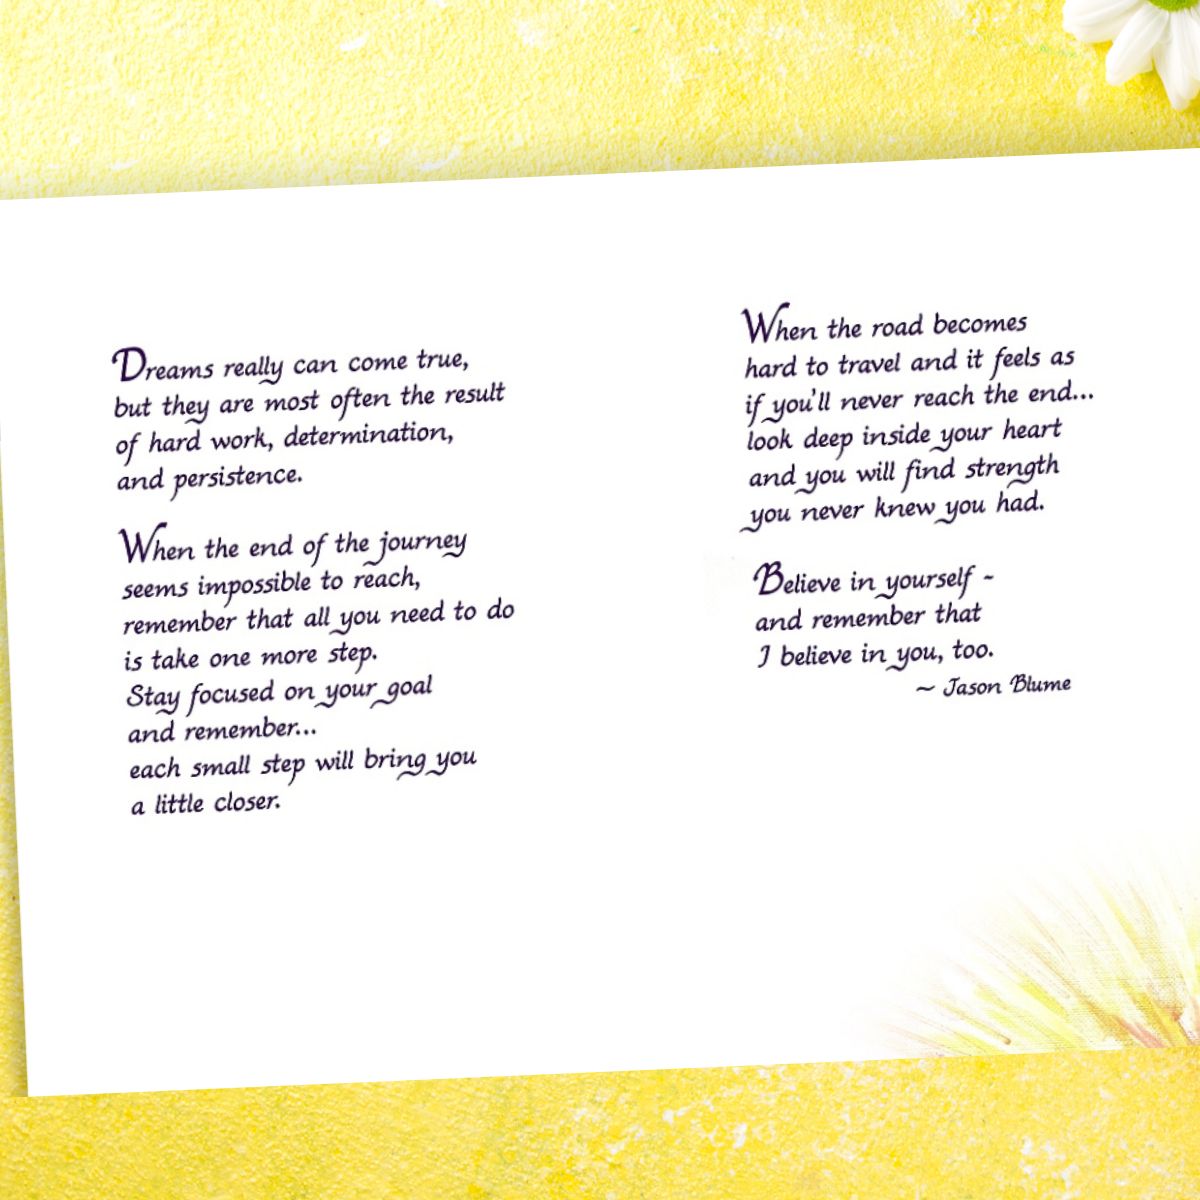 Dreams really can come true,
but they are most often the result
of hard work, determination,
and persistence.
When the end of the journey
seems impossible to reach,
remember that all you need to do
is take one more step.
Stay focused on your goal
and remember...
each small step will bring you
a little closer.
When the road becomes
hard to travel and it feels as
if you'll never reach the end...
look deep inside your heart
and you will find strength
you never knew you had.
Believe in yourself -
and remember that
I believe in you, too.
~ Jason Blume